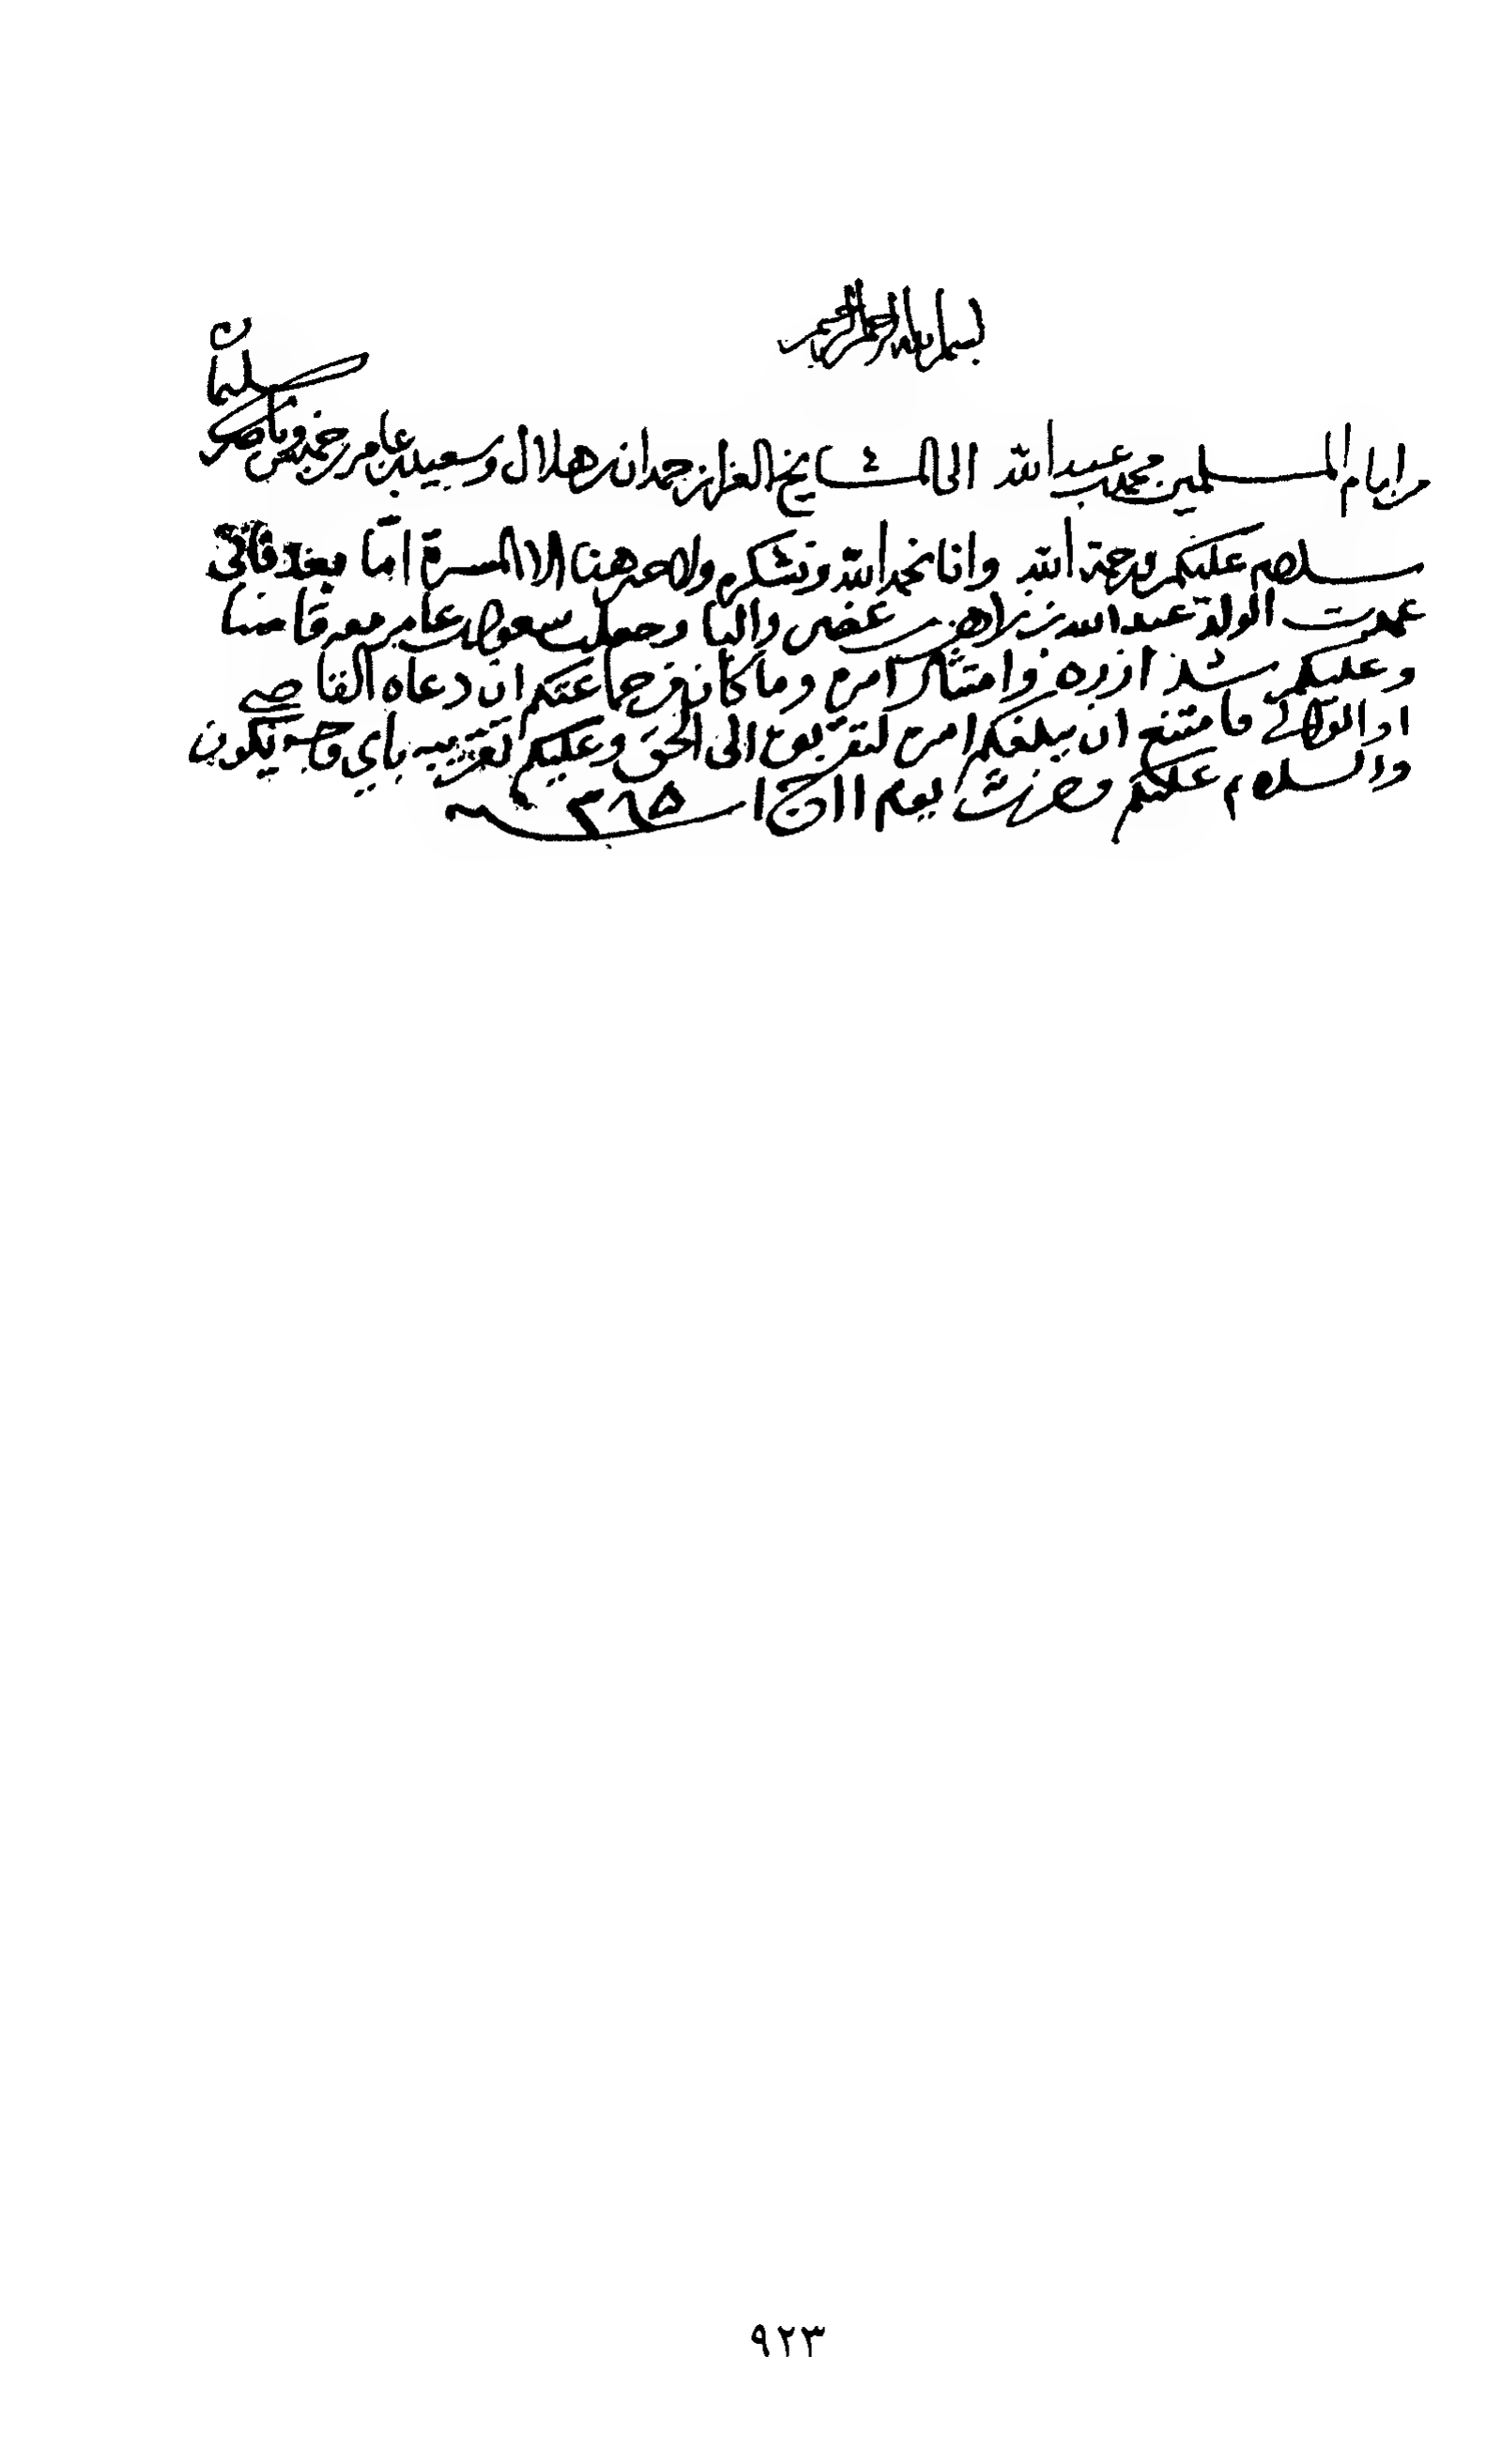 بسم الله الرحمن الرحيم
من امام المسلمين محمد بن عبدالله الى المشايخ العزاز حمدان بن هلال وسعيد بن عامر وناصر بن سليمان
سلام عليكم ورحمة الله وانا نحمد الله ونشكره ولا من هنا الا المسرة اما بعد فاني
عمدت الولد عبدالله بن زاهر بن غصن واليا وجعلت سعود بن عامر معه قاضيا
وعليكم شد ازره وامتثال امره وما كان من جماعتكم ان دعاه القاضي
او الوالي فامتنع ان يبلغكم امره لتقربوه الى الحق وعليكم تقريبه باي وجه يكون
والسلام عليكم يوم ١١ الحج ١٣٦٥
٩٢٣